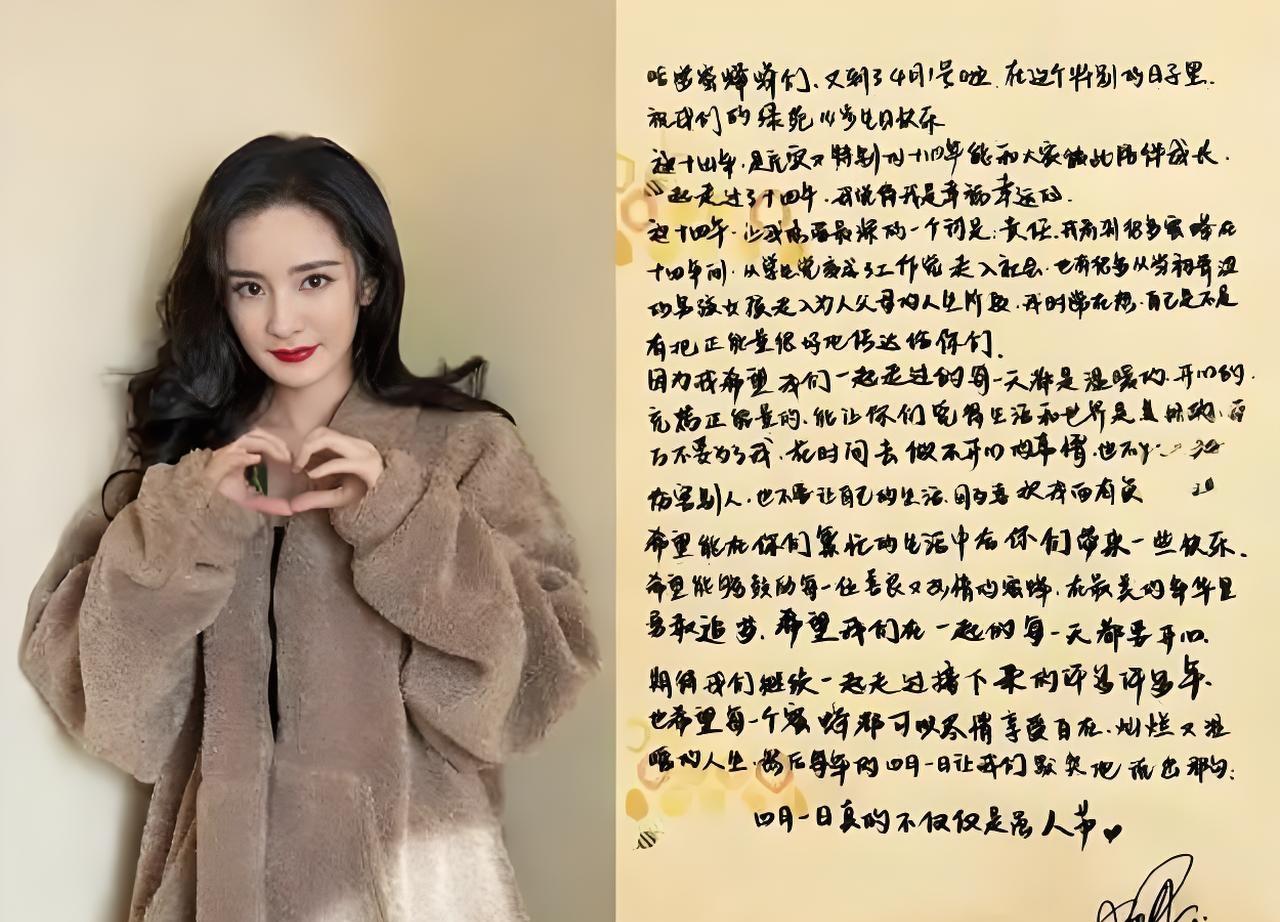 哈喽蜜蜂蜂们、又到了4月1号啦、在这个特别的日子里、
祝我们的绿苑14岁生日快乐
这十四年、是充实又特别的十四年能和大家彼此陪伴成长、
一起走过了十四年、我觉得我是幸福幸运的.
这十四年、让我感受最深的一个词是:责任、我看到很多蜜蜂在
十四年间、从学生党变成了工作党走入社会、也有很多从当初青涩
的男孩女孩走入为人父母的人生阶段、我时常在想、自己是不是
有把正能量很好地传达给你们.
因为我希望我们一起走过的每一天都是温暖的、开心的、
充满正能量的、能让你们觉得生活和世界是美好的、而
不要为了我、花时间去做不开心的事情、也不
伤害别人、也不要让自己的生活、因为喜欢我而有负
希望能在你们繁忙的生活中给你们带来一些快乐、
希望能够鼓励每一位善良又热情的蜜蜂、在最美的年华里
勇敢追梦、希望我们在一起的每一天都要开心、
期待我们继续一起走过接下来的许多许多年、
也希望每一个蜜蜂都可以尽情享受自在、灿烂又温
暖的人生、然后每年的四月一日让我们默契地说出那句:
四月一日真的不仅仅是愚人节♥